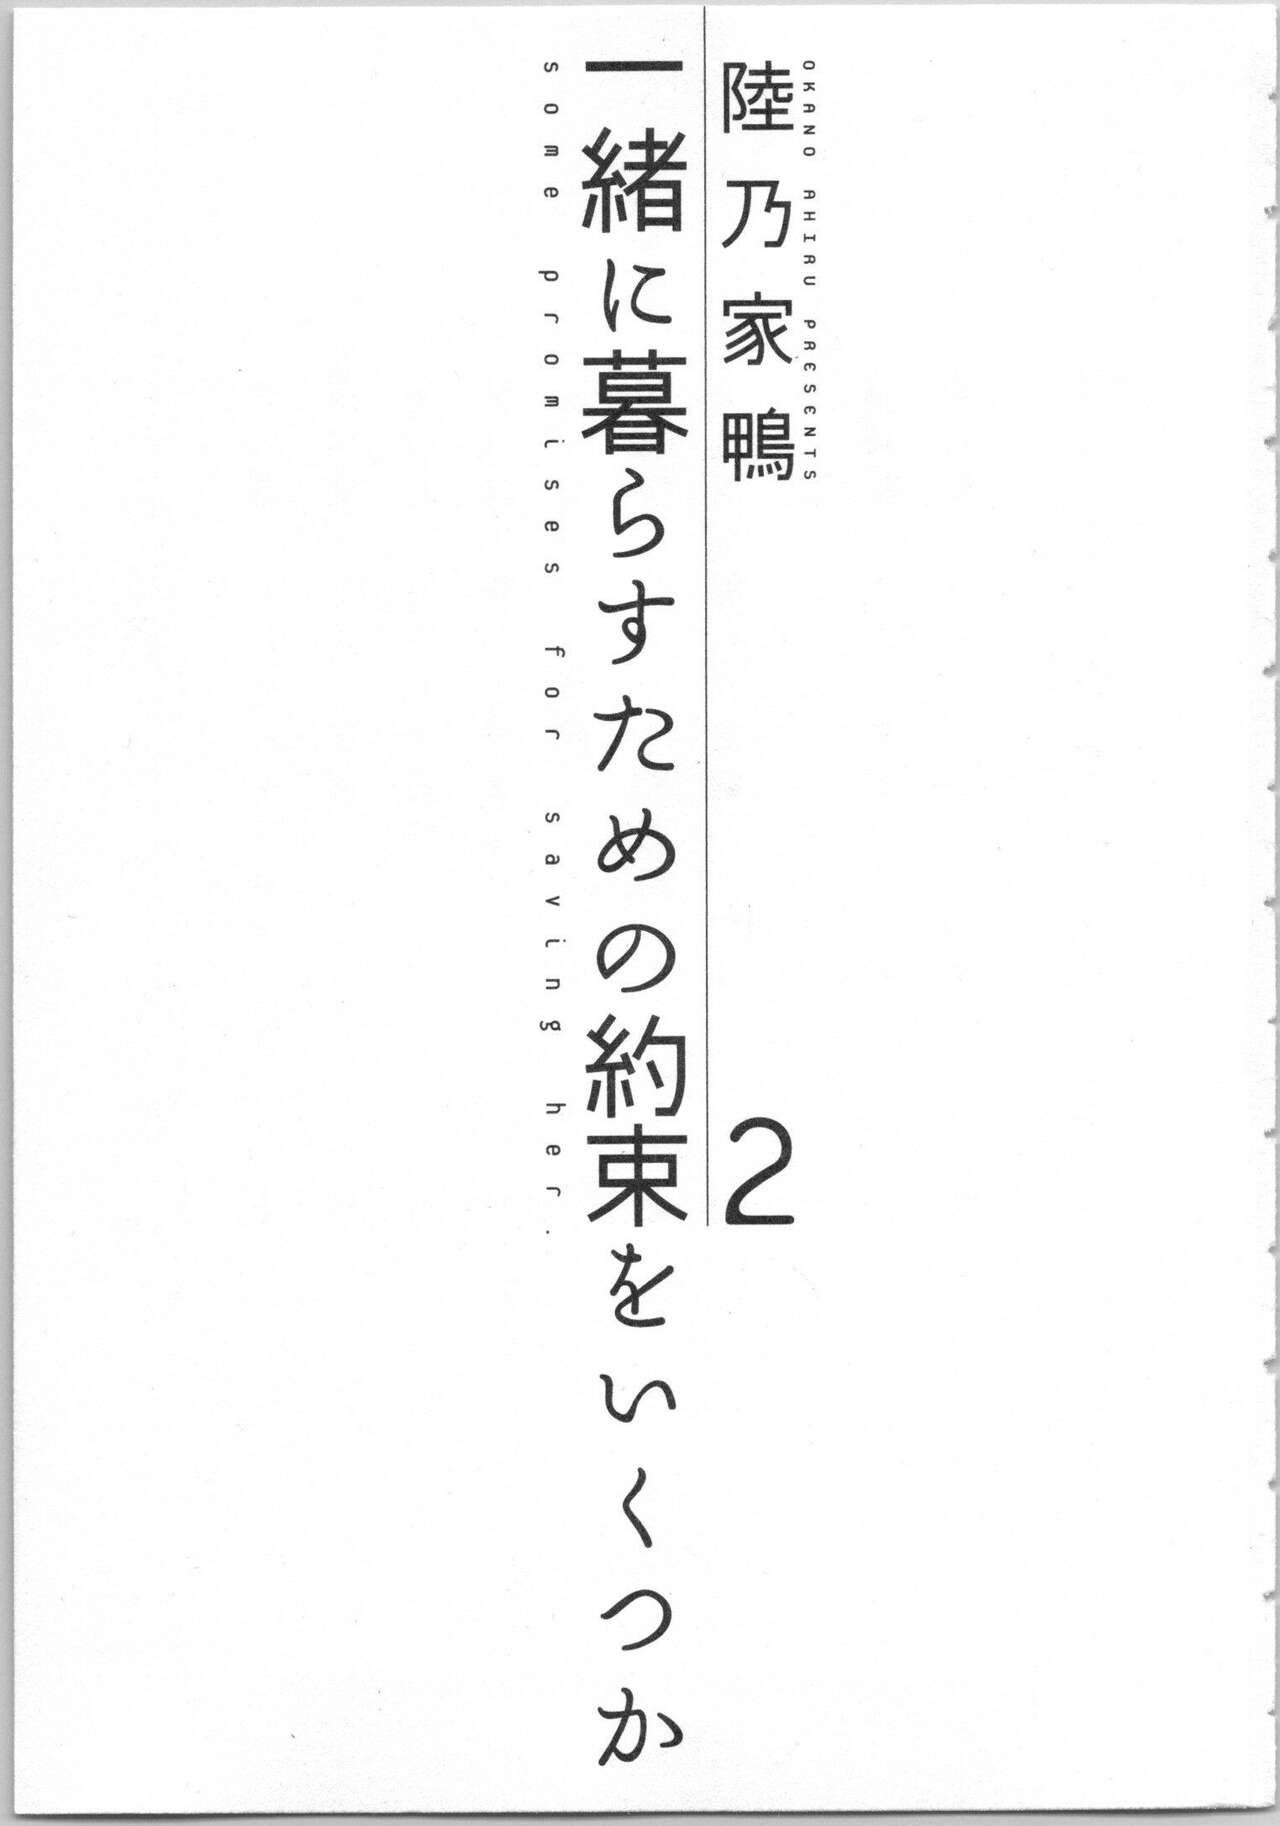 OKANO AHIRU PRESENTS
陸乃家鴨
2
一緒に暮らすための約束をいくつか
some promises for saving her.